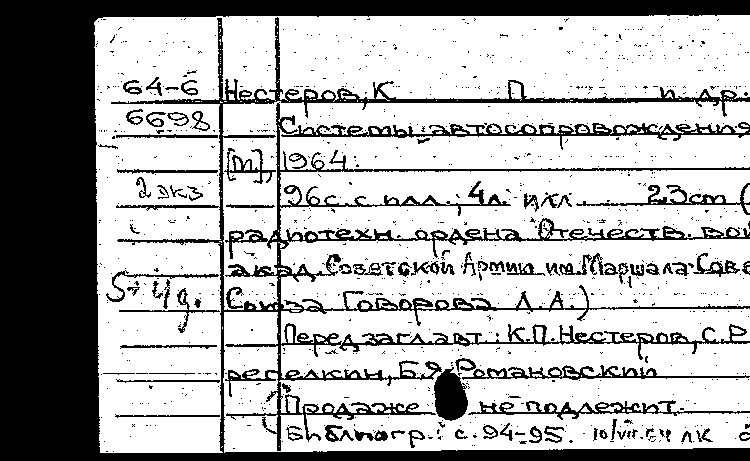 64-6 Нестеров, К П и др.
6698 Системы автосопровождения
[М], 1964.
2 экз 96с. с илл.; 4л. илл. 23cm (
радиотехн. ордена Отечеств. вой
акад. Советской Армии им. Маршала Сове
Союза Говорова Л.А.)
Перед загл. авт.: К.П. Нестеров, С.Р
ределкин, Б.Я. Романовский
Продаже не подлежит.
Библиогр.: с. 94-95. 10/VII.64 ЛК